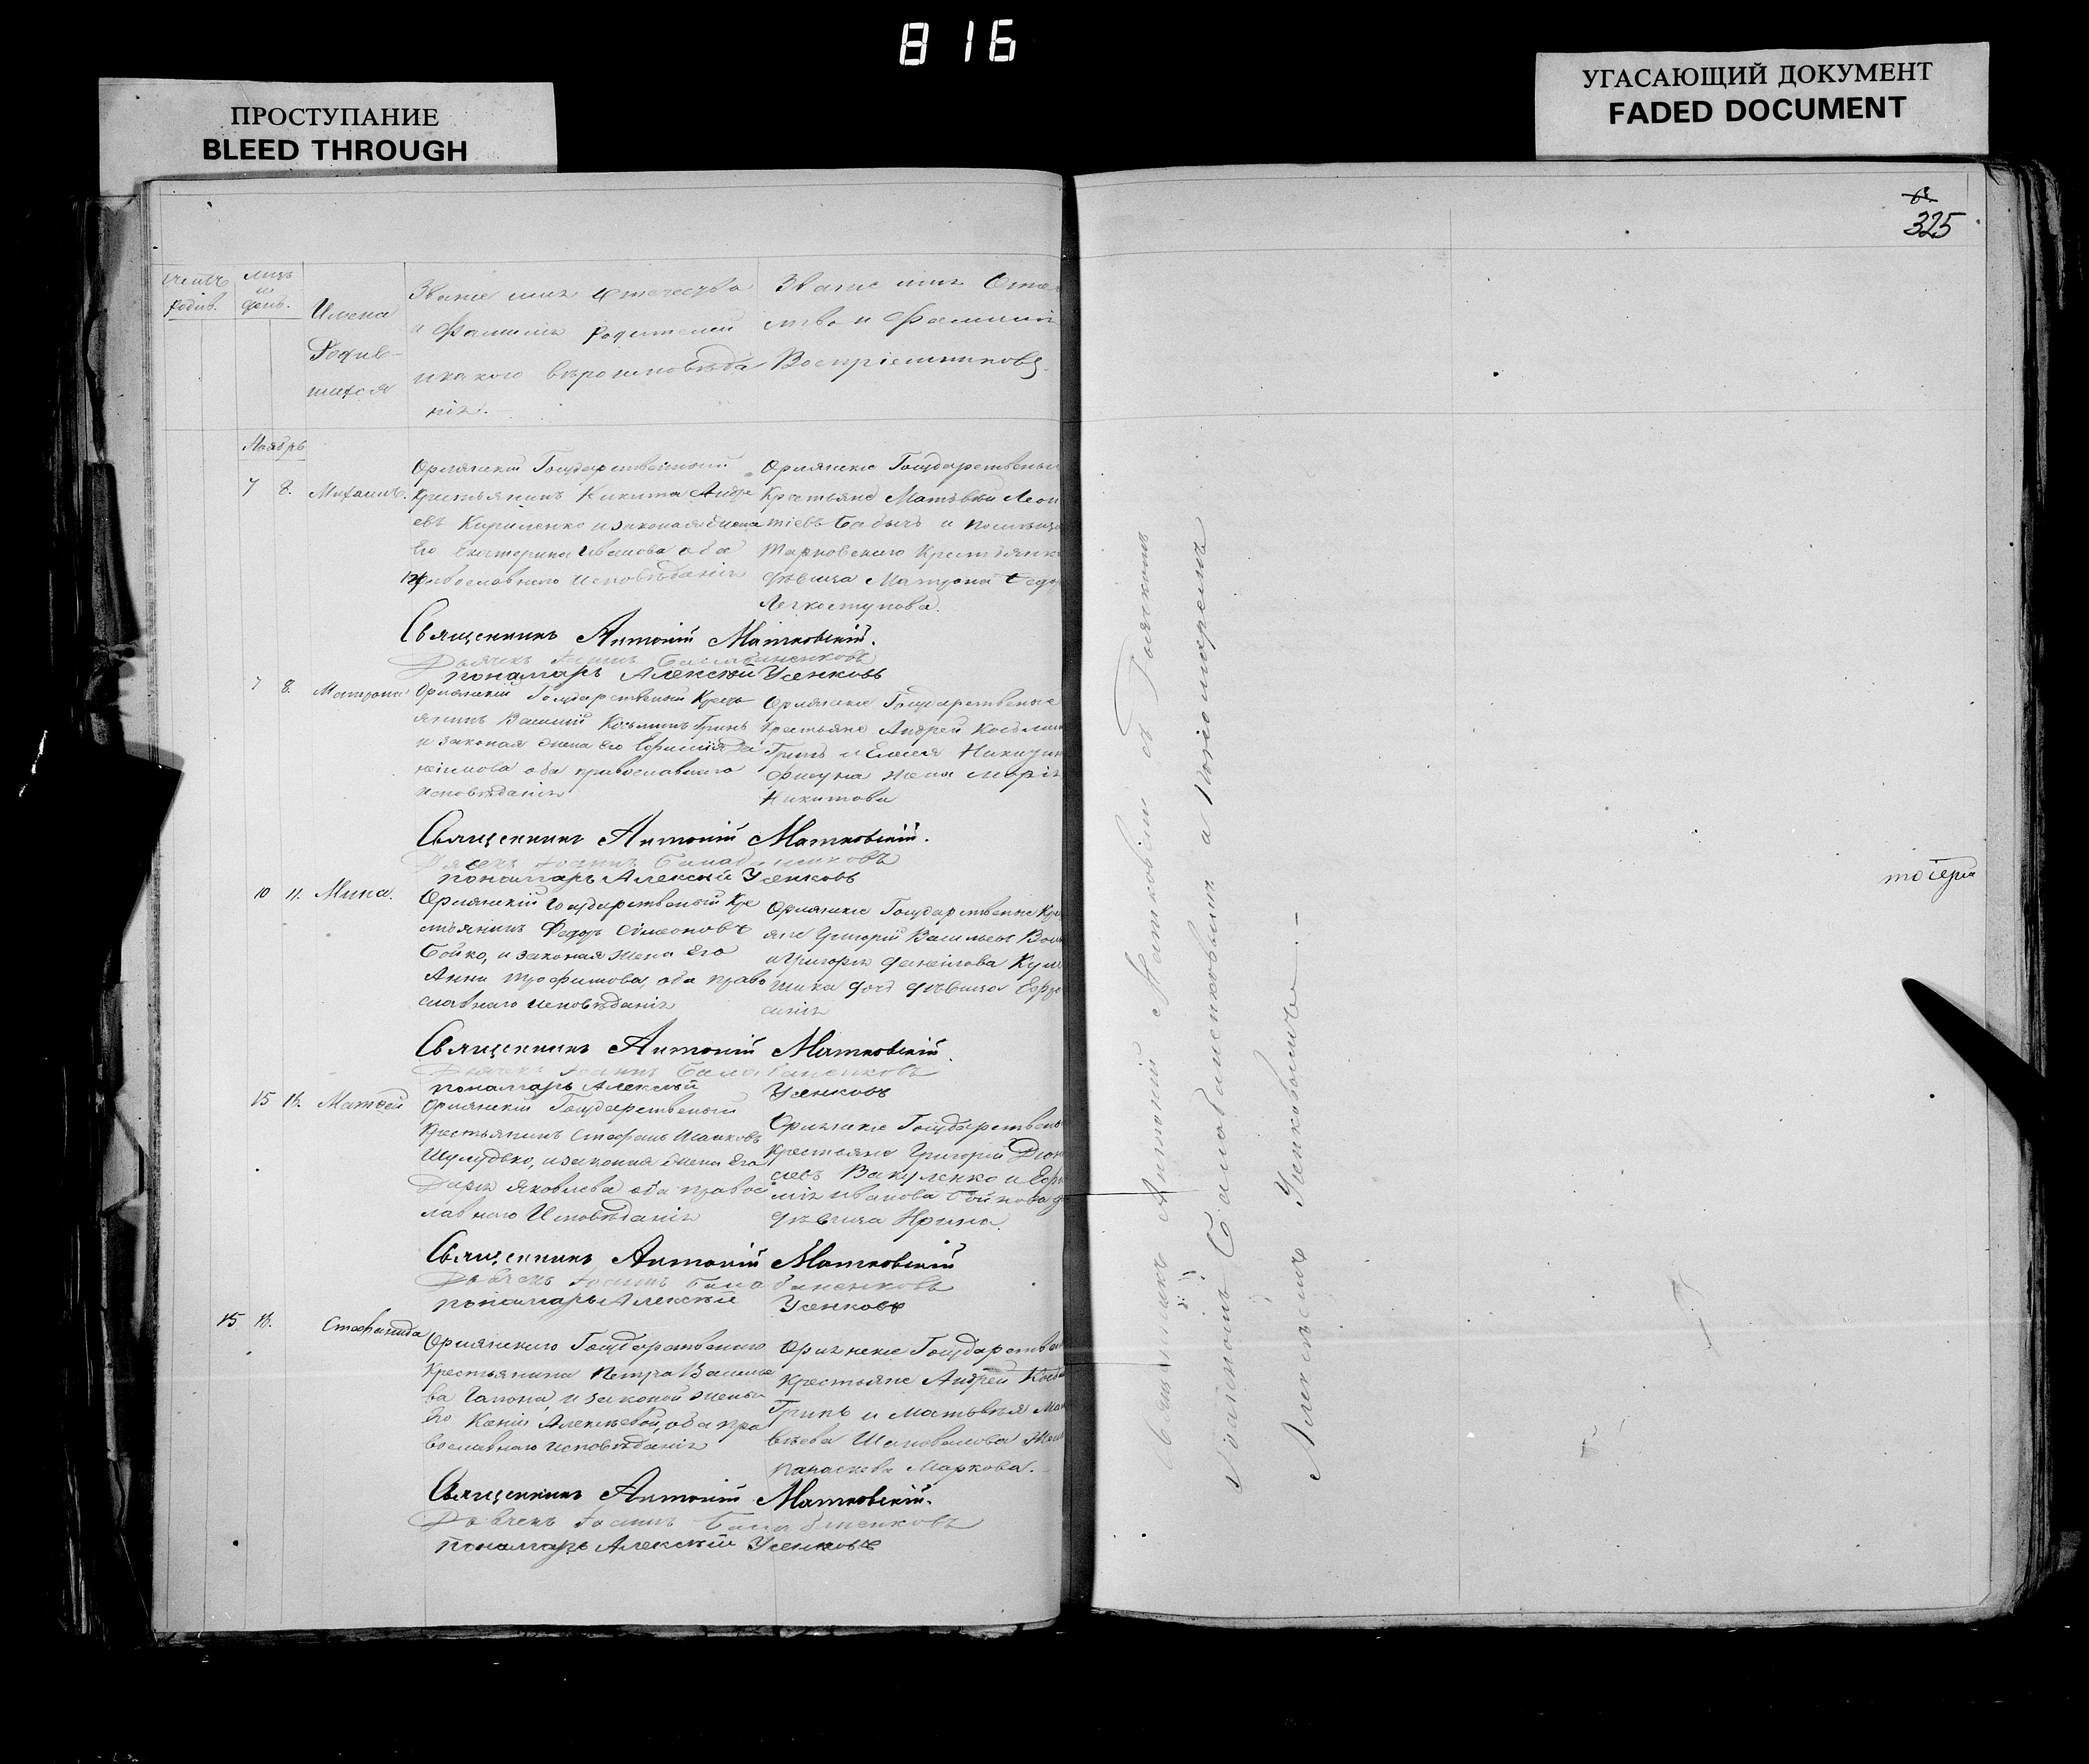 816
ПРОСТУПАНИЕ
BLEED THROUGH
УГАСАЮЩИЙ ДОКУМЕНТ
FADED DOCUMENT
325
родив.
день.
Имена
Родив-
шихся
Званіе имя отечества
и Фамилія родителей
и какого вѣроисповѣда
нія.
Званіе имя Оте
ство и Фамилія
Воспріемниковъ.
Ноябрь
7 8. Михаилъ.
Орлянскій Государственный
Крестьянинъ Никита Андре
евъ Кириленко и законая жена
Его Екатерина Иванова оба
православнаго исповѣданія
Орлянскіе Государственыи
Крестьяне Матѣвѣй Леон
тіевъ Бабычъ и помѣщи
Марковскаго Крестьянк
дѣвица Матрона Федо
Легкоступова.
Священникъ Антоній Матковскій.
Дьячекъ Іоаннъ Балабаненковъ
пономарь Алексѣй Усенковъ
7 8. Матрона
Орлянскій Государственый Крест
янинъ Василій Козьминъ Гринь
и законая жена Его
оба православнаго
исповѣданія
Орлянскіе Государственые
Крестьяне Андрей Косьмин
Гринь и Елисея Никити
жена Марія
Никитова
Священникъ Антоній Матковскій.
Дьячекъ Іоаннъ Балабаненковъ
пономарь Алексѣй Усенковъ
10 11. Мина.
Орлянскій Государственый Кре
стьянинъ Федоръ Симеоновъ
Бойко, и законая жена Его
Анна Трофимова, оба право
славнаго исповѣданія
Орлянскіе Государственые Кре
яне Григорій Васильевъ
и Григорія Данѣілова
дочь дѣвица Ефро
синія
Священникъ Антоній Матковскій.
Дьячекъ Іоаннъ Балабаненковъ
пономарь Алексѣй Усенковъ
15 16. Матвей
Орлянскій Государственый
Крестьянинъ Стефанъ Исаковъ
Шулудько, и законая жена Его
Дарья Яковлева оба правос
лавнаго Исповѣданія
Орлянскіе Государствены
Крестьяне Григорій Діон
сіевъ Вакуленко и
Иванова Бойкова
дѣвица Ирина.
Священникъ Антоній Матковскій
Дьячекъ Іоаннъ Балабаненковъ
пономарь Алексѣй Усенковъ
15 16. Стефанида
Орлянскаго Государственаго
Крестьянина Петра Василье
ва Гапона, и законой жены
Его Ксеніи Алексѣевой, оба пра
вославнаго исповѣданія
Орлянскіе Государствен
Крестьяне Андрей Косьм
Гринь и Матьвѣя Мат
вѣева Шаповалова Жена
Параскева Маркова.
Священникъ Антоній Матковскій.
Дьячекъ Іоаннъ Балабаненковъ
пономарь Алексѣй Усенковъ
Священникъ Антоній Матковскій съ Дьячкомъ
Іоанномъ Балабаненковымъ и Пономаремъ
Алексѣемъ Усенковымъ. –